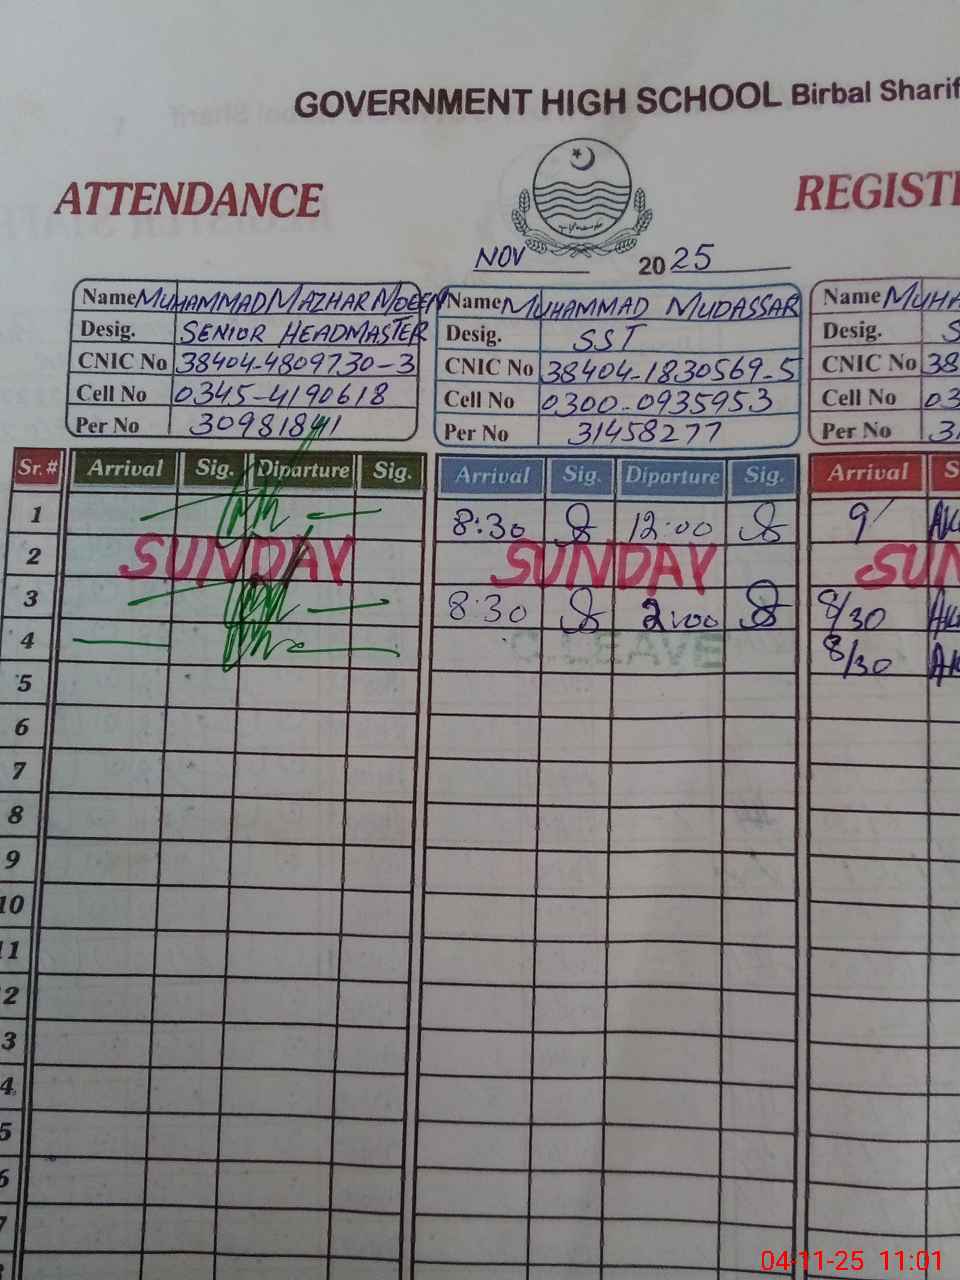 GOVERNMENT HIGH SCHOOL Birbal Sharif
ATTENDANCE
REGISTE
NOV 2025
Name MUHAMMAD MAZHAR MOEEN
Desig. SENIOR HEADMASTER
CNIC No 38404-4809730-3
Cell No 0345-4190618
Per No 30981841
Name MUHAMMAD MUDASSAR
Desig. SST
CNIC No 38404-1830569-5
Cell No 0300-0935953
Per No 31458277
Name MUHA
Desig. S
CNIC No 38
Cell No 03
Per No 31
Sr.# Arrival Sig. Diparture Sig. Arrival Sig. Diparture Sig. Arrival S
1 8:30 12:00 9/
2 SUNDAY SUNDAY SUN
3 8:30 2:00 8/30
4 LEAVE 8/30
5
6
7
8
9
10
11
2
3
4
5
6
7
8
04-11-25 11:01